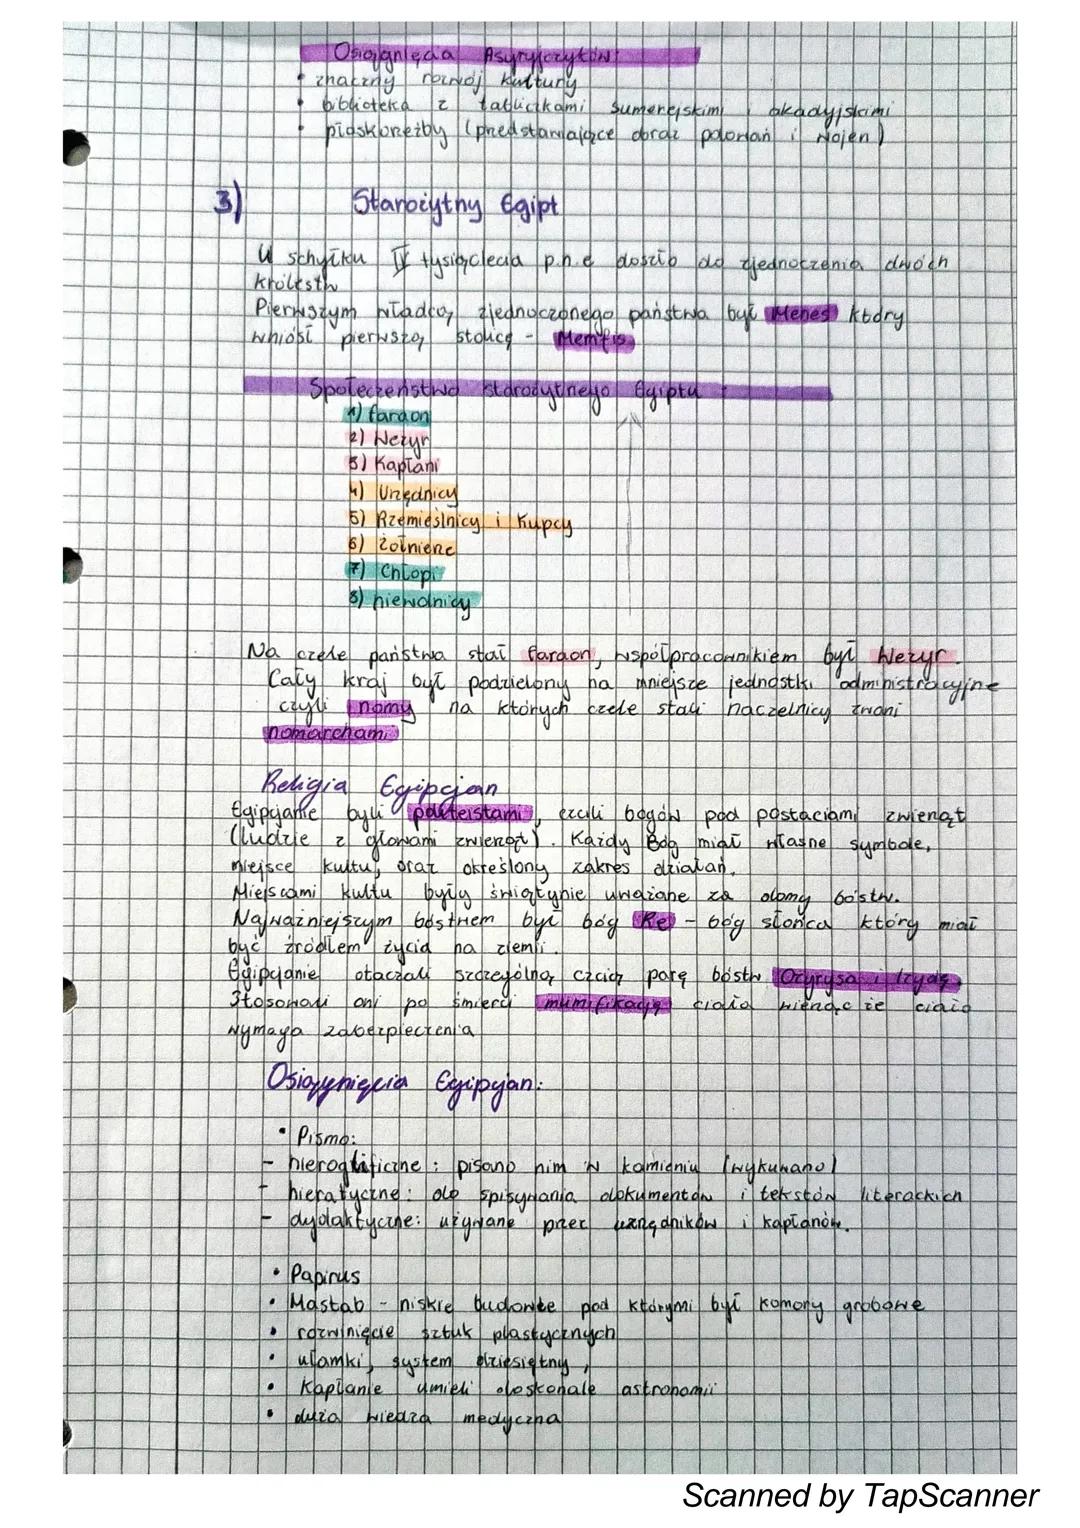 Osiągnięcia Asyryjczyków:
• znaczny rozwój kultury
• biblioteka z tabliczkami sumeryjskimi i akadyjskimi
• płaskorzeźby (przedstawiające obraz polowań i wojen)
3) Starożytny Egipt
U schyłku IV tysiąclecia p.n.e doszło do zjednoczenia dwóch
królestw
Pierwszym władcą zjednoczonego państwa był Menes który
wniósł pierwszą stolicę - Memfis
Społeczeństwo starożytnego Egiptu :
1) faraon
2) Wezyr
3) Kapłani
4) Urzędnicy
5) Rzemieślnicy i kupcy
6) żołnierze
7) Chłopi
8) niewolnicy
Na czele państwa stał faraon, współpracownikiem był Wezyr.
Cały kraj był podzielony na mniejsze jednostki administracyjne
czyli nomy na których czele stali naczelnicy zwani
nomarchami
Religia Egipcjan
Egipcjanie byli politeistami, czcili bogów pod postaciami zwierząt
(ludzie z głowami zwierząt). Każdy Bóg miał własne symbole,
miejsce kultu, oraz określony zakres działań.
Miejscami kultu były świątynie uważane za domy bóstw.
Najważniejszym bóstwem był bóg Re - bóg słońca który miał
być źródłem życia na ziemi.
Egipcjanie otaczali szczególną czcią parę bóstw Ozyrysa i Izydę.
Stosowali oni po śmierci mumifikację ciała wierząc że ciało
wymaga zabezpieczenia
Osiągnięcia Egipcjan:
• Pismo:
- hieroglificzne : pisano nim w kamieniu (wykuwano)
- hieratyczne: do spisywania dokumentów i tekstów literackich
- dydaktyczne: używane przez urzędników i kapłanów.
• Papirus
• Mastab - niskie budowle pod którymi był komory grobowe
• rozwinięcie sztuk plastycznych
• ułamki, system dziesiętny,
• Kapłanie umieli doskonale astronomii
• duża wiedza medyczna
Scanned by TapScanner